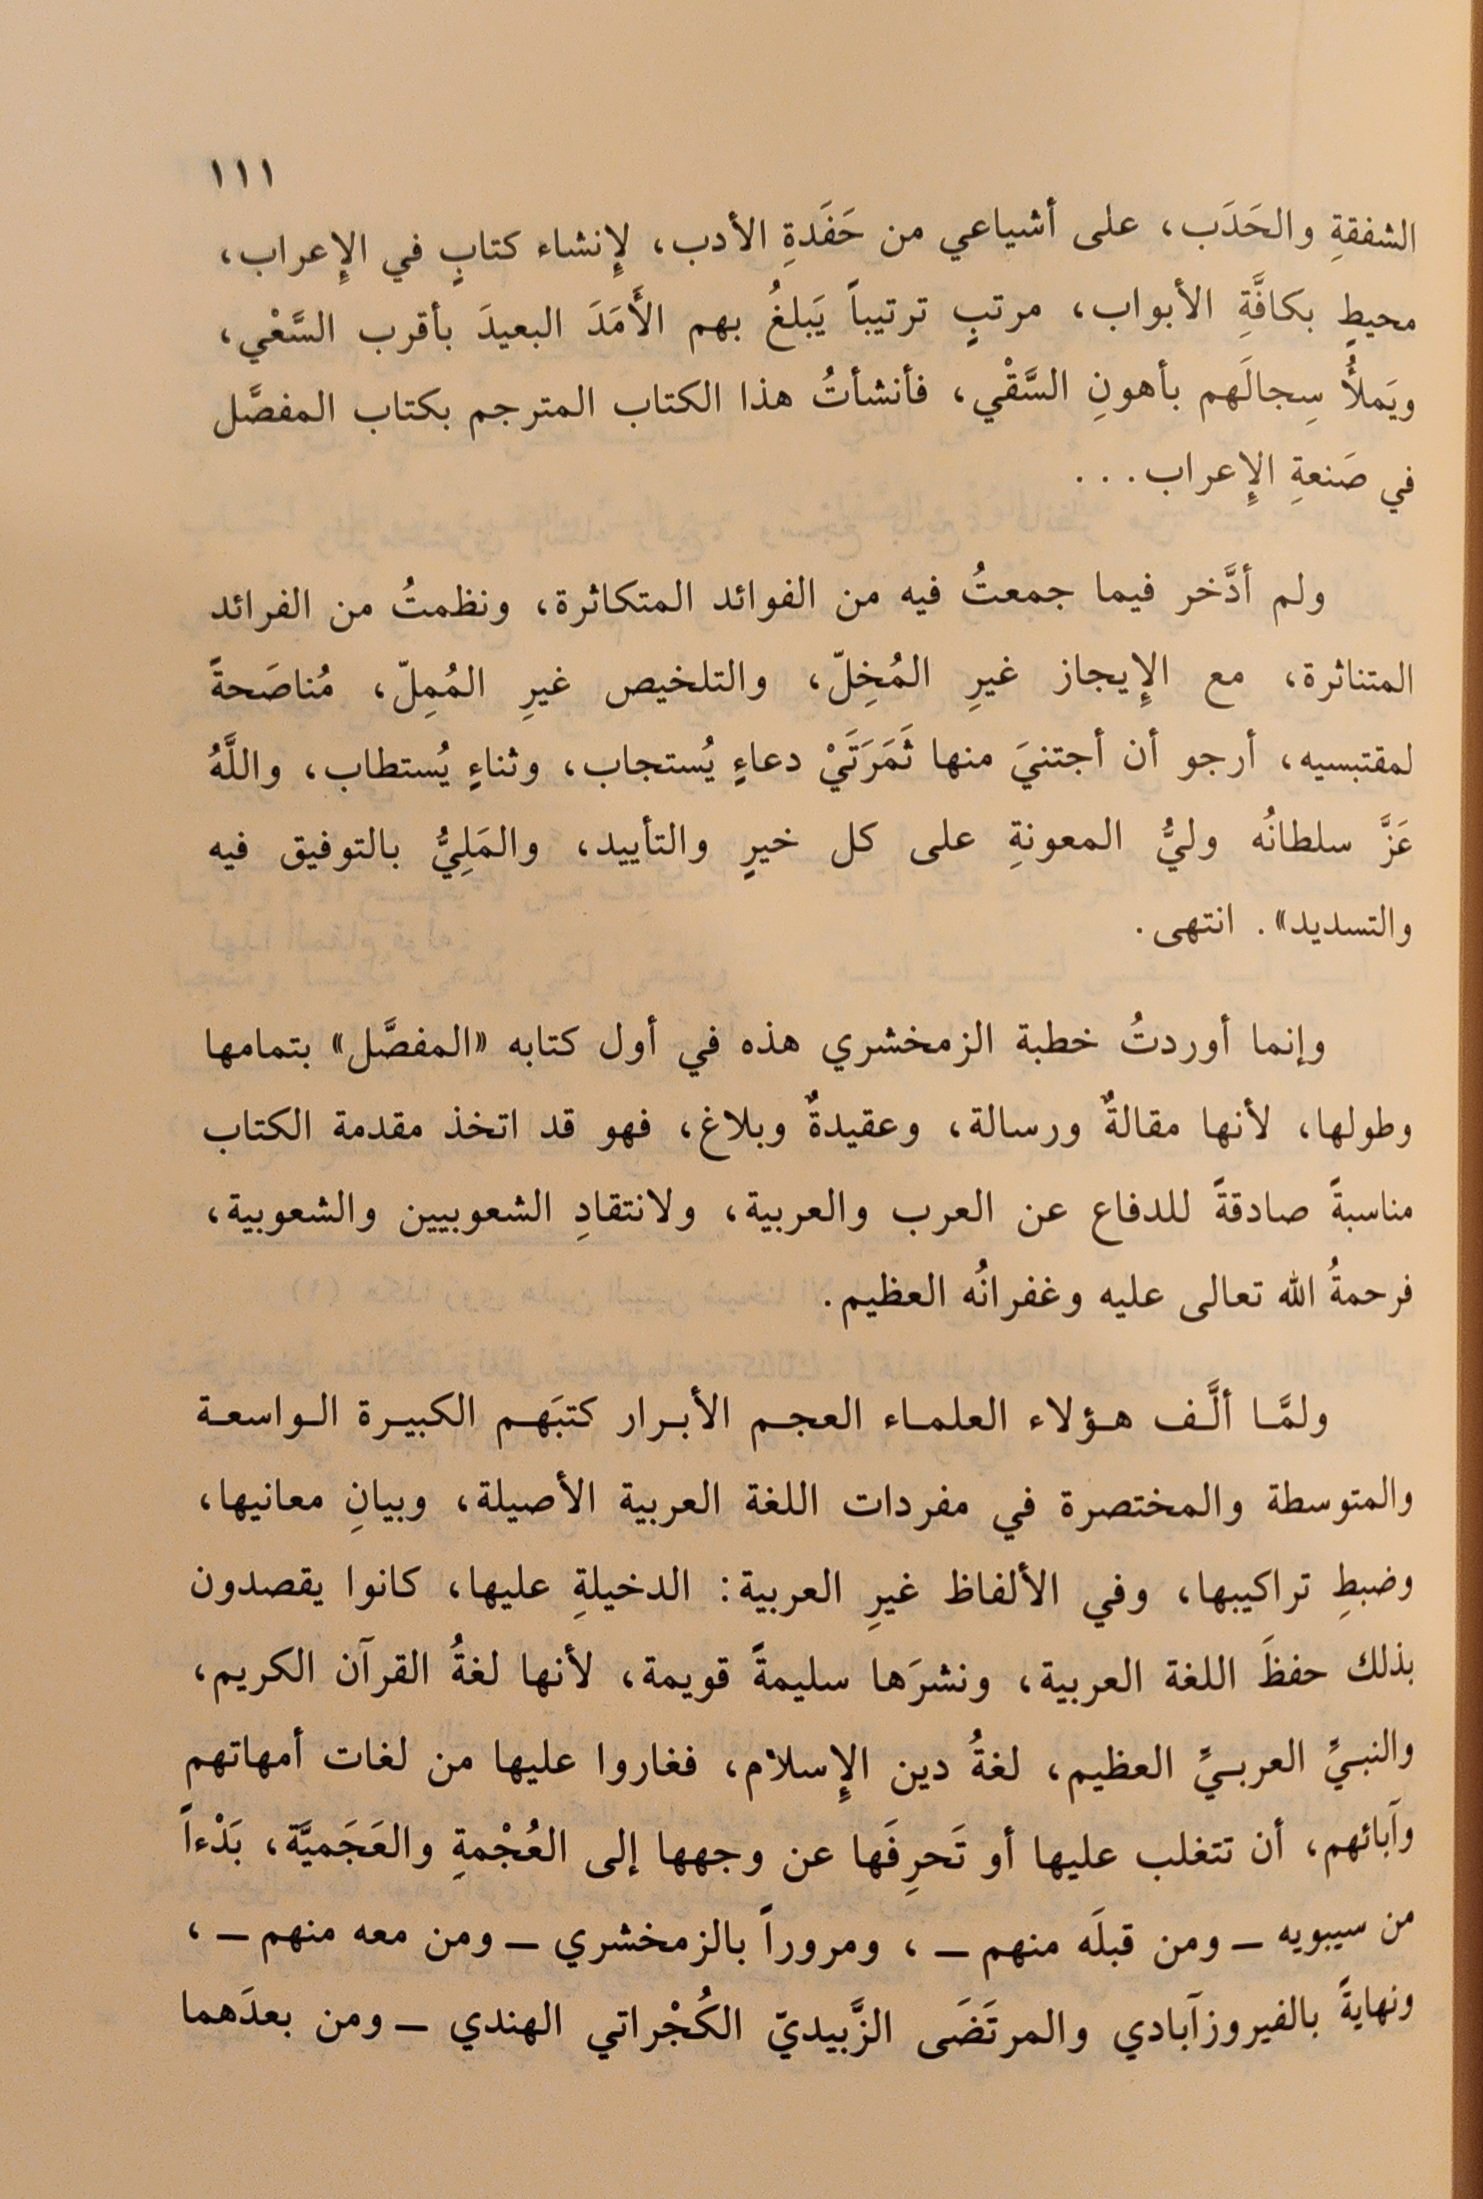 ١١١
الشفقةِ والحَدَب، على أشياعي من حَفَدَةِ الأدب، لإِنشاء كتابٍ في الإِعراب،
محيطٍ بكافَّةِ الأبواب، مرتبٍ ترتيباً يَبلغُ بهم الأَمَدَ البعيدَ بأقرب السَّعْي،
ويَملأُ سِجالَهم بأهونِ السَّقْي، فأنشأتُ هذا الكتاب المترجم بكتاب المفصَّل
في صَنعةِ الإِعراب...
ولم أدَّخر فيما جمعتُ فيه من الفوائد المتكاثرة، ونظمتُ من الفرائد
المتناثرة، مع الإِيجاز غيرِ المُخِلّ، والتلخيص غيرِ المُمِلّ، مُناصَحةً
لمقتبسيه، أرجو أن أجتنيَ منها ثَمَرَتَيْ دعاءٍ يُستجاب، وثناءٍ يُستطاب، واللَّهُ
عَزَّ سلطانُه وليُّ المعونةِ على كل خيرٍ والتأييد، والمَلِيُّ بالتوفيق فيه
والتسديد». انتهى.
وإنما أوردتُ خطبة الزمخشري هذه في أول كتابه «المفصَّل» بتمامها
وطولها، لأنها مقالةٌ ورسالة، وعقيدةٌ وبلاغ، فهو قد اتخذ مقدمة الكتاب
مناسبةً صادقةً للدفاع عن العرب والعربية، ولانتقادِ الشعوبيين والشعوبية،
فرحمةُ الله تعالى عليه وغفرانُه العظيم.
ولمَّا ألَّف هؤلاء العلماء العجم الأبرار كتبَهم الكبيرة الواسعة
والمتوسطة والمختصرة في مفردات اللغة العربية الأصيلة، وبيانِ معانيها،
وضبطِ تراكيبها، وفي الألفاظ غيرِ العربية: الدخيلةِ عليها، كانوا يقصدون
بذلك حفظَ اللغة العربية، ونشرَها سليمةً قويمة، لأنها لغةُ القرآن الكريم،
والنبيِّ العربيِّ العظيم، لغةُ دين الإِسلام، فغاروا عليها من لغات أمهاتهم
وآبائهم، أن تتغلب عليها أو تَحرِفَها عن وجهها إلى العُجْمةِ والعَجَميَّة، بَدْءاً
من سيبويه ــ ومن قبلَه منهم ــ ، ومروراً بالزمخشري ــ ومن معه منهم ــ ،
ونهايةً بالفيروزآبادي والمرتَضَى الزَّبيديّ الكُجْراتي الهندي ــ ومن بعدَهما